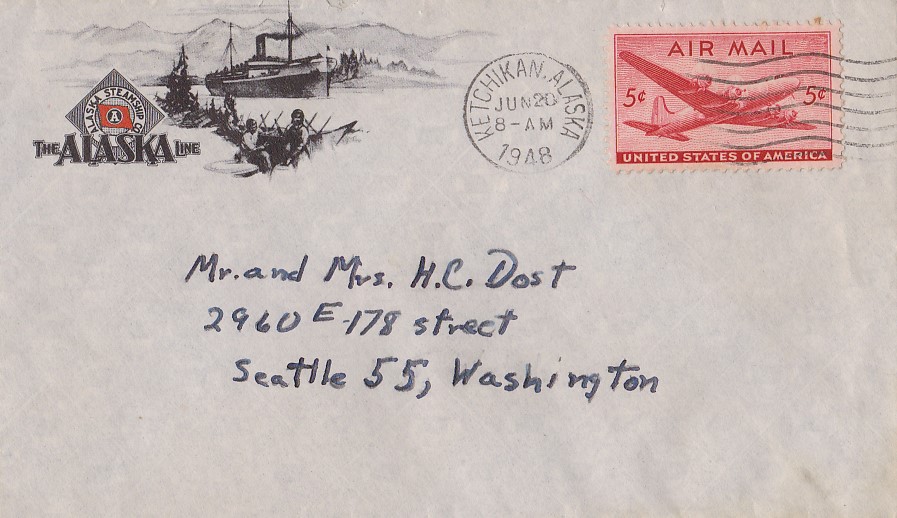 ALASKA STEAMSHIP CO.
A
THE ALASKA LINE
KETCHIKAN, ALASKA
JUN 20
8-AM
1948
AIR MAIL
5¢ 5¢
UNITED STATES OF AMERICA
Mr. and Mrs. H.C. Dost
2960 E-178 street
Seattle 55, Washington